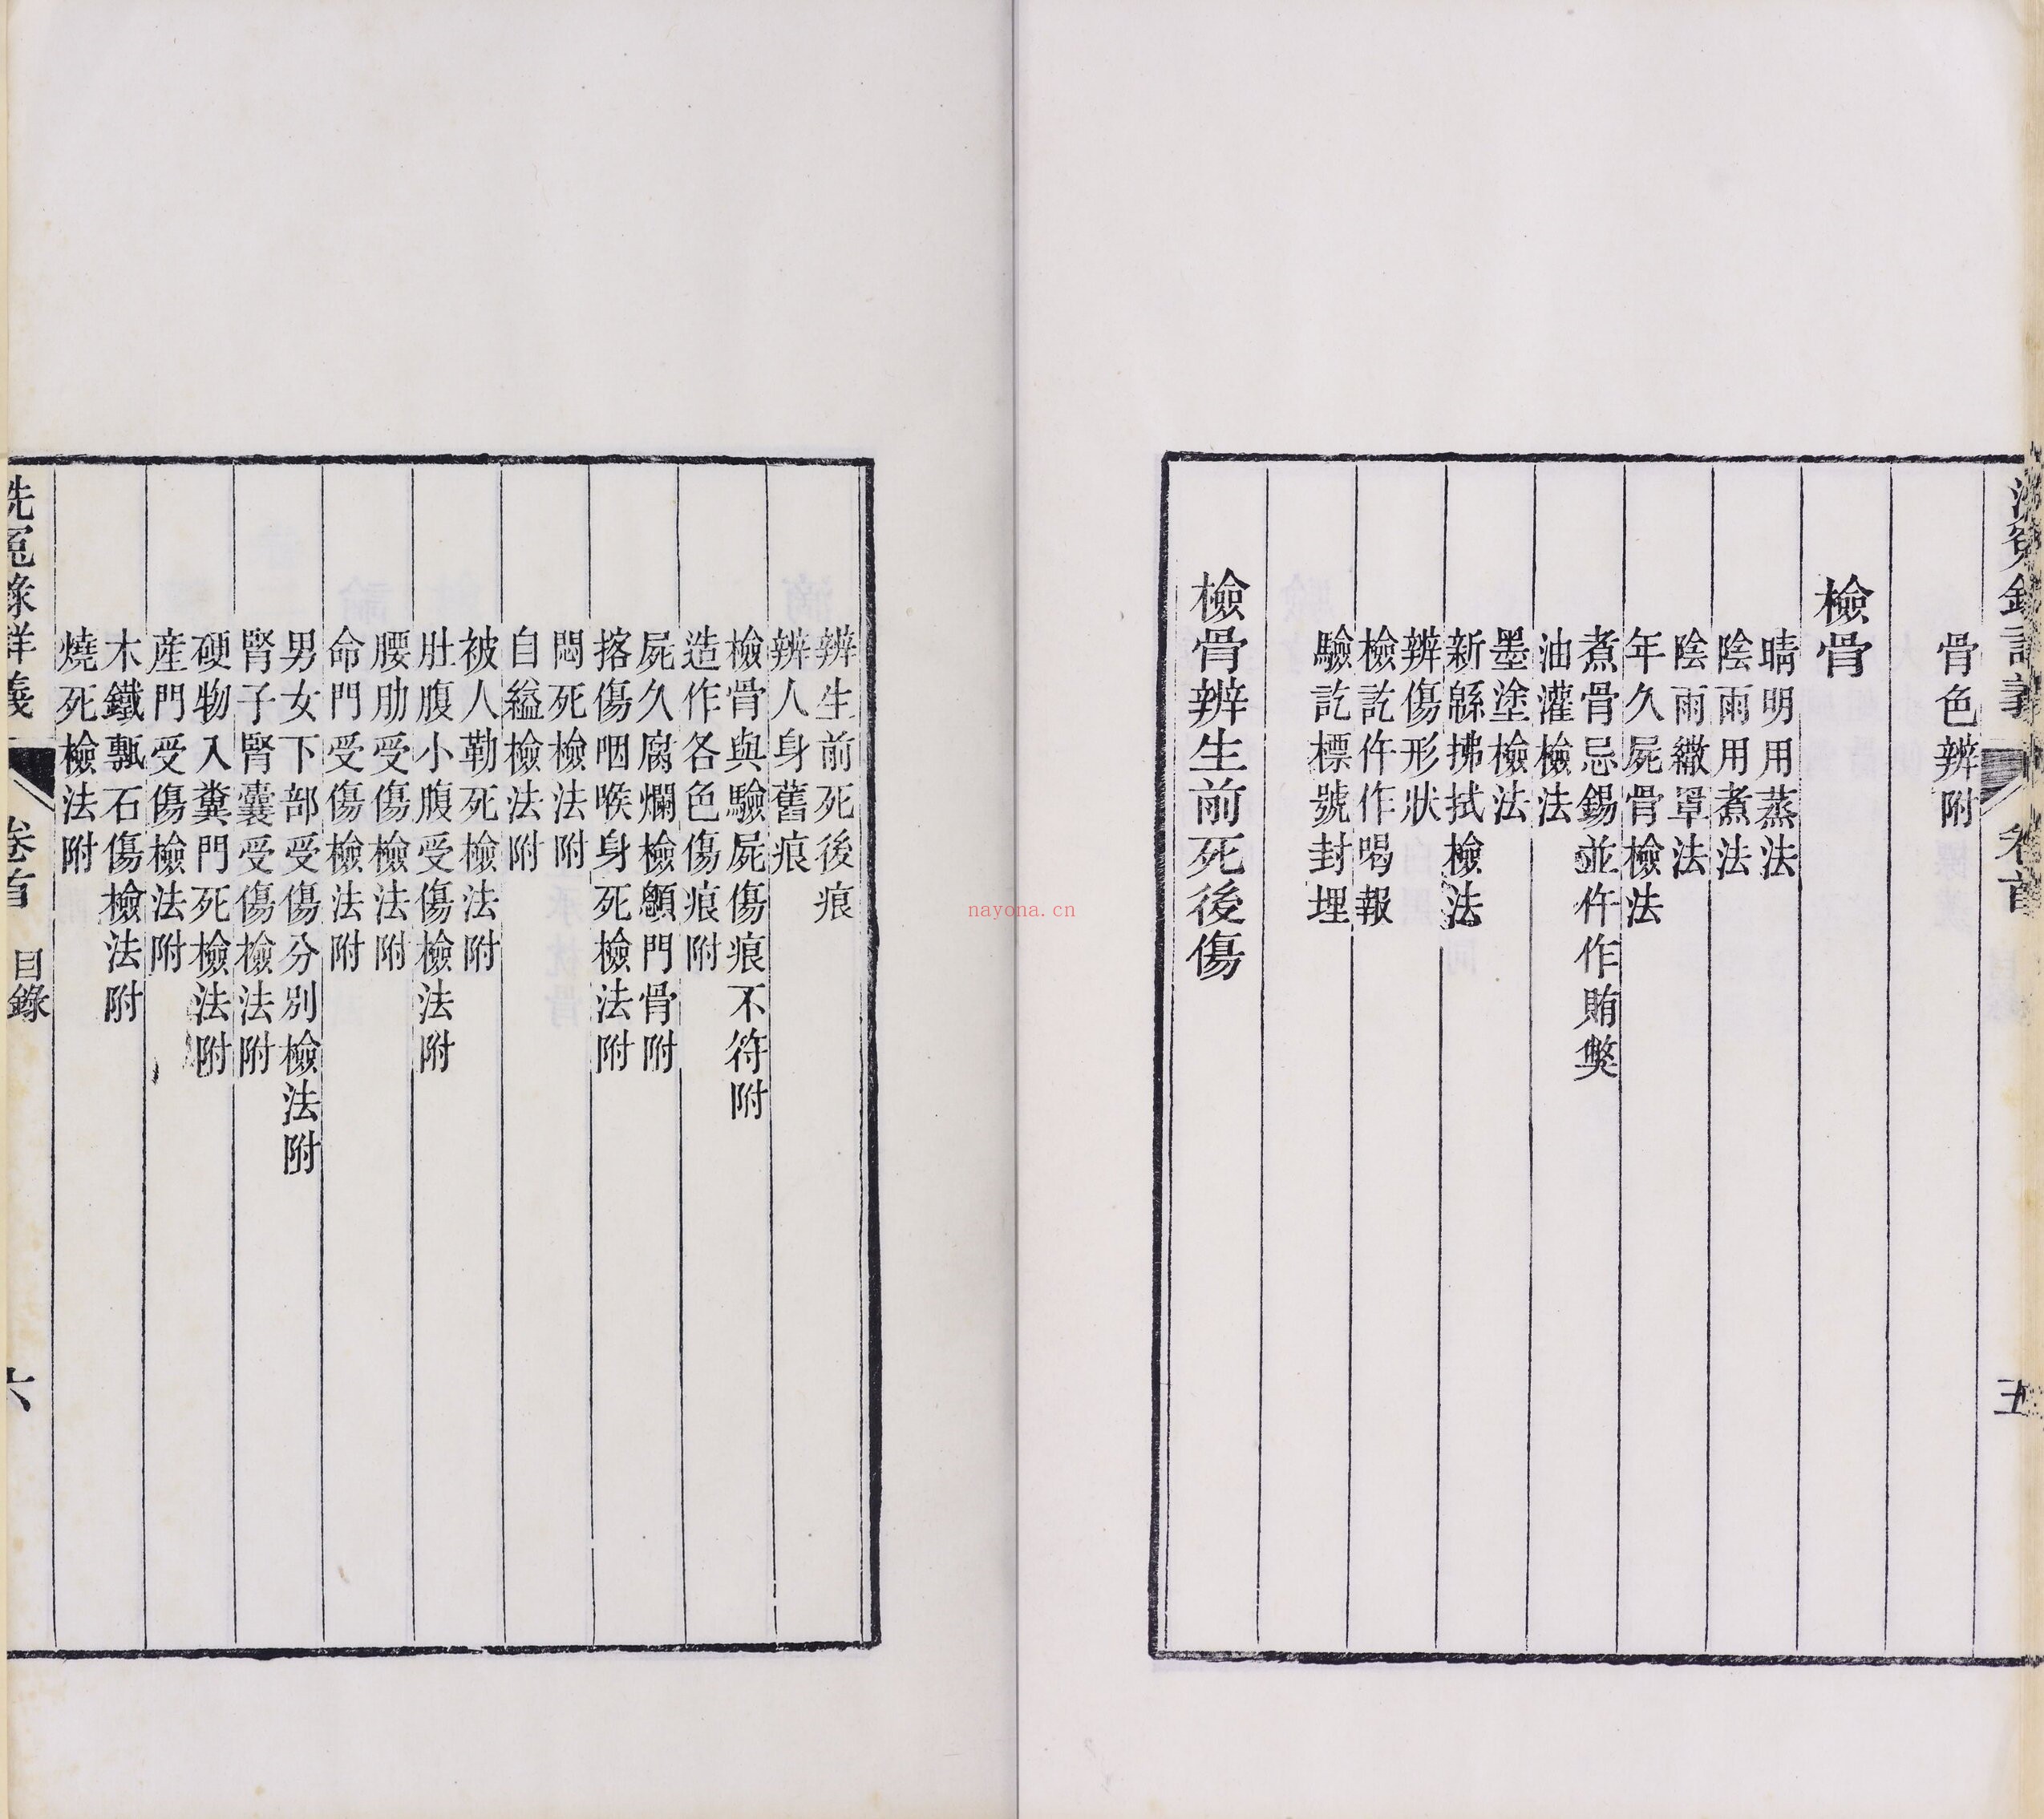 洗冤錄詳義
卷首
五
骨色辨附
檢骨
晴明用蒸法
陰雨用煮法
陰雨繖罩法
年久屍骨檢法
煮骨忌錫並仵作賄獘
油灌檢法
墨塗檢法
新緜拂拭檢法
辨傷形狀
檢訖仵作喝報
驗訖標號封埋
檢骨辨生前死後傷
辨生前死後痕
辨人身舊痕
檢骨與驗屍傷痕不符附
造作各色傷痕附
屍久腐爛檢顖門骨附
搭傷咽喉身死檢法附
悶死檢法附
自縊檢法附
被人勒死檢法附
肚腹小腹受傷檢法附
腰肋受傷檢法附
命門受傷檢法附
男女下部受傷分別檢法附
腎子腎囊受傷檢法附
硬物入糞門死檢法附
產門受傷檢法附
木鐵甎石傷檢法附
燒死檢法附
洗冤錄詳義
卷首
目錄
六
nayona.cn